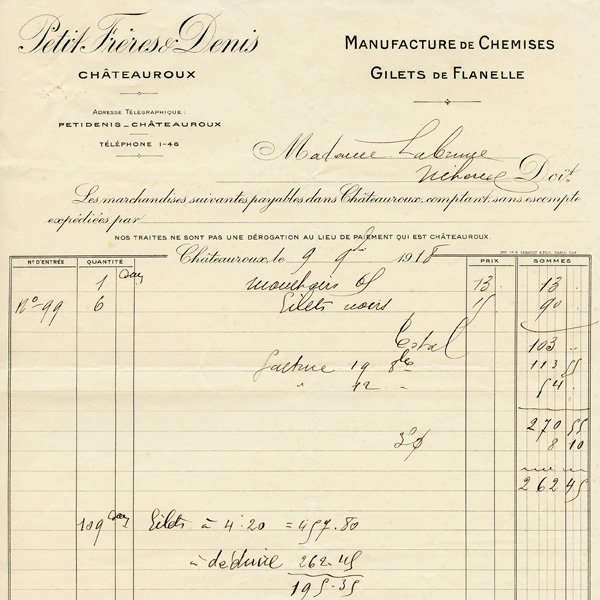 Petit Frères & Denis
CHÂTEAUROUX
ADRESSE TÉLÉGRAPHIQUE:
PETIDENIS_CHÂTEAUROUX
TÉLÉPHONE 1-46
MANUFACTURE DE CHEMISES
GILETS DE FLANELLE
Madame Labrune
Doit
Les marchandises suivantes payables dans Châteauroux, comptant, sans escompte
expédiées par
NOS TRAITES NE SONT PAS UNE DÉROGATION AU LIEU DE PAIEMENT QUI EST CHÂTEAUROUX.
Châteauroux, le 9 9bre 1918
N° D'ENTRÉE QUANTITÉ PRIX SOMMES
1 13 13
N°-99 6 Gilets noirs 15 90
Total 103
Facture 19 8bre 113 55
" 22 " 54
270 55
3% 8 10
262 45
109 Gilets à 4.20 = 457.80
à déduire 262.45
195-35